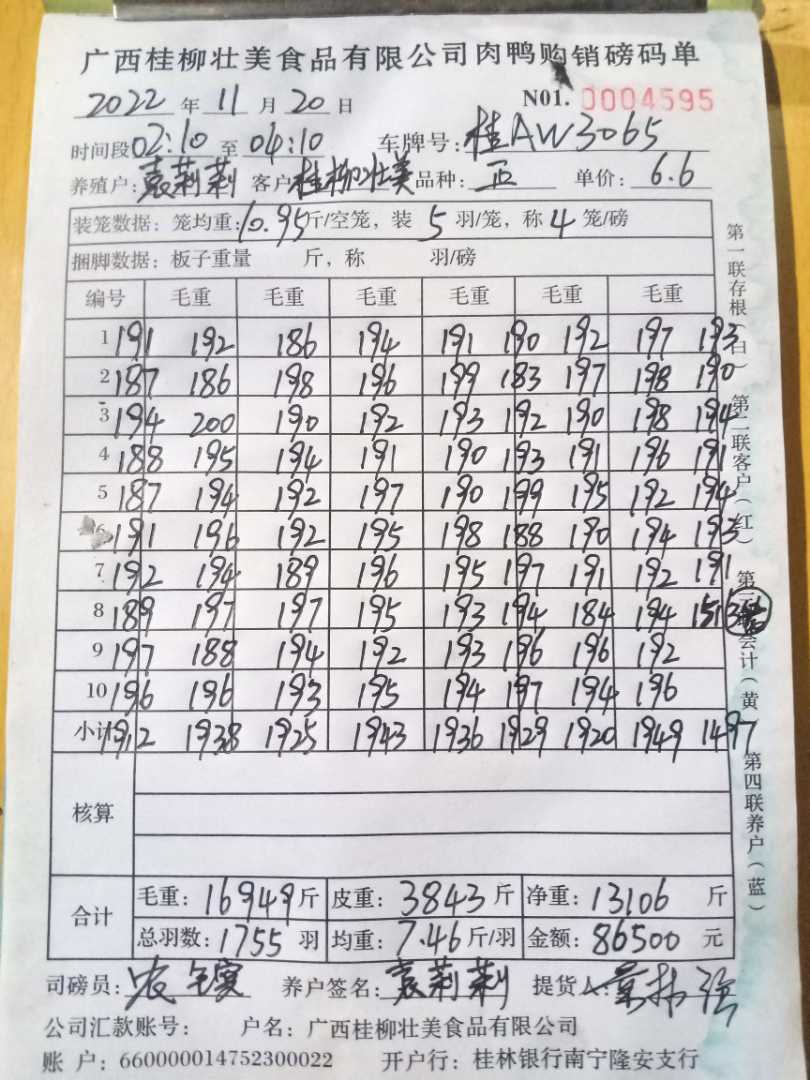 广西桂柳壮美食品有限公司肉鸭购销磅码单
2022 年 11 月 20 日 N01. 0004595
时间段 02:10 至 04:10 车牌号: 桂AW3065
养殖户: 袁莉莉 客户: 桂柳壮美 品种: 正 单价: 6.6
装笼数据: 笼均重: 10.95 斤/空笼, 装 5 羽/笼, 称 4 笼/磅
捆脚数据: 板子重量 斤, 称 羽/磅
编号 毛重 毛重 毛重 毛重 毛重 毛重
1 191 192 186 194 191 190 192 197 193
2 187 186 198 196 199 183 197 198 190
3 194 200 190 192 193 192 190 198 194
4 188 195 194 191 190 193 191 196 191
5 187 194 192 197 190 199 195 192 194
6 191 196 192 195 198 188 190 194 193
7 192 194 189 196 195 197 191 192 191
8 189 197 197 195 193 194 184 194 151
9 197 188 194 192 193 196 196 192
10 196 196 193 195 194 197 194 196
小计 1912 1938 1925 1943 1936 1929 1920 1949 1497
核算
合计 毛重: 16949 斤 皮重: 3843 斤 净重: 13106 斤
总羽数: 1755 羽 均重: 7.46 斤/羽 金额: 86500 元
司磅员: 养户签名: 袁莉莉 提货人:
公司汇款账号: 户名: 广西桂柳壮美食品有限公司
账 户: 660000014752300022 开户行: 桂林银行南宁隆安支行
第一联存根(白) 第二联客户(红) 第三联会计(黄) 第四联养户(蓝)